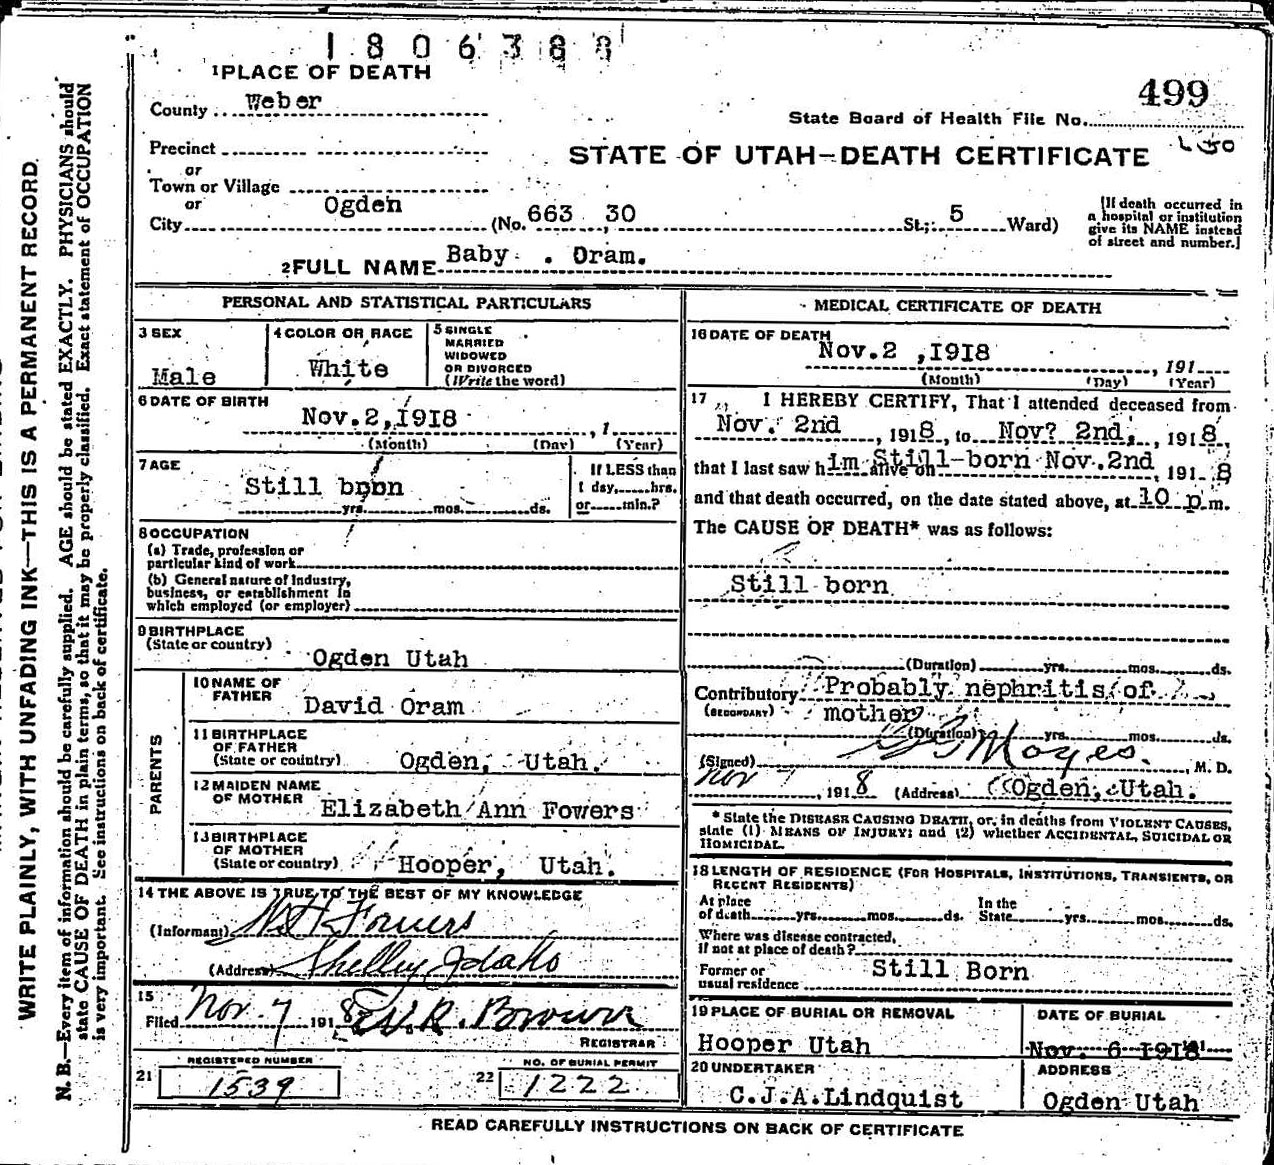 1806388
1 PLACE OF DEATH
499
County Weber
State Board of Health File No.
Precinct
STATE OF UTAH—DEATH CERTIFICATE
or
Town or Village
or
City Ogden (No. 663 , 30 St; 5 Ward)
[If death occurred in
a hospital or institution
give its NAME instead
of street and number.]
2 FULL NAME Baby . Oram.
PERSONAL AND STATISTICAL PARTICULARS
3 SEX
Male
4 COLOR OR RACE
White
5 SINGLE
MARRIED
WIDOWED
OR DIVORCED
(Write the word)
6 DATE OF BIRTH
Nov.2,1918 , 1
(Month) (Day) (Year)
7 AGE
Still born
yrs. mos. ds.
If LESS than
1 day, hrs.
or min.?
8 OCCUPATION
(a) Trade, profession or
particular kind of work
(b) General nature of Industry,
business, or establishment in
which employed (or employer)
9 BIRTHPLACE
(State or country)
Ogden Utah
PARENTS
10 NAME OF
FATHER
David Oram
11 BIRTHPLACE
OF FATHER
(State or country) Ogden, Utah.
12 MAIDEN NAME
OF MOTHER Elizabeth Ann Fowers
13 BIRTHPLACE
OF MOTHER
(State or country) Hooper, Utah.
14 THE ABOVE IS TRUE TO THE BEST OF MY KNOWLEDGE
(Informant) Fowers
(Address) Shelley Idaho
15
Filed Nov. 7 1918 W.R. Brown
REGISTRAR
REGISTERED NUMBER
21 1539
NO. OF BURIAL PERMIT
22 1222
MEDICAL CERTIFICATE OF DEATH
16 DATE OF DEATH
Nov.2 ,1918 , 191
(Month) (Day) (Year)
17 I HEREBY CERTIFY, That I attended deceased from
Nov. 2nd , 1918, to Nov? 2nd, , 1918,
that I last saw him alive on Still-born Nov.2nd , 191 8
and that death occurred, on the date stated above, at 10 p.m.
The CAUSE OF DEATH* was as follows:
Still born
(Duration) yrs. mos. ds.
Contributory Probably nephritis of
(SECONDARY) mother
(Duration) yrs. mos. ds.
(Signed) Moyes. , M. D.
Nov 7 , 1918 (Address) Ogden, Utah.
* State the DISEASE CAUSING DEATH, or, in deaths from VIOLENT CAUSES,
state (1) MEANS OF INJURY; and (2) whether ACCIDENTAL, SUICIDAL OR
HOMICIDAL.
18 LENGTH OF RESIDENCE (FOR HOSPITALS, INSTITUTIONS, TRANSIENTS, OR
RECENT RESIDENTS)
At place
of death yrs. mos. ds.
In the
State yrs. mos. ds.
Where was disease contracted,
if not at place of death?
Former or
usual residence Still Born
19 PLACE OF BURIAL OR REMOVAL
Hooper Utah
DATE OF BURIAL
Nov. 6 1918
20 UNDERTAKER
C.J.A.Lindquist
ADDRESS
Ogden Utah
READ CAREFULLY INSTRUCTIONS ON BACK OF CERTIFICATE
WRITE PLAINLY, WITH UNFADING INK—THIS IS A PERMANENT RECORD.
N. B.—Every item of information should be carefully supplied. AGE should be stated EXACTLY. PHYSICIANS should
state CAUSE OF DEATH in plain terms, so that it may be properly classified. Exact statement of OCCUPATION
is very important. See instructions on back of certificate.